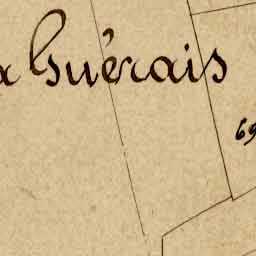 a Guérais
69